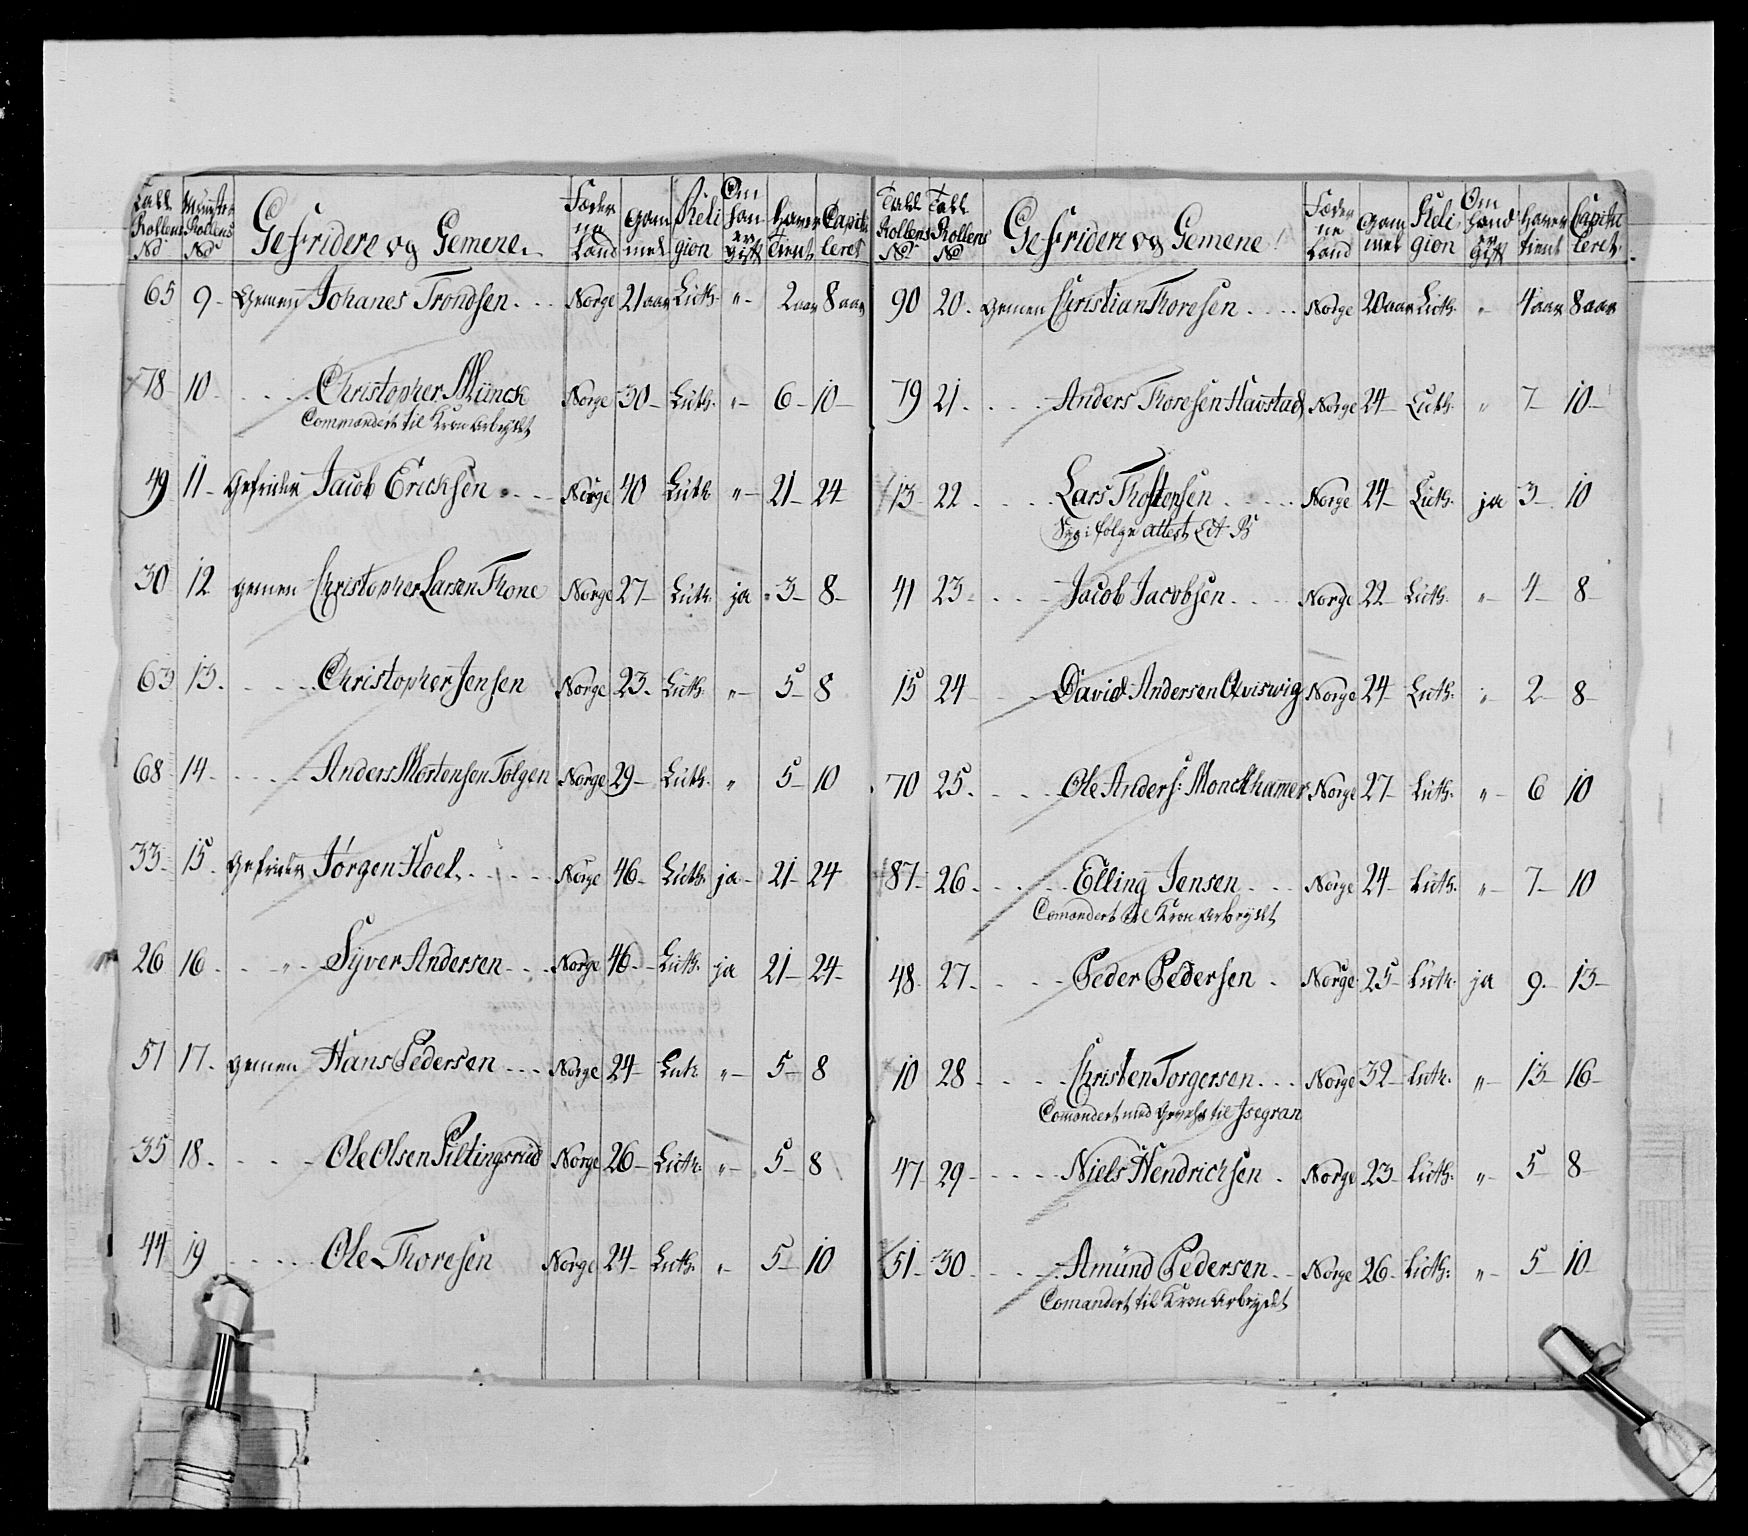 Tall Rollens No | Münster Rollens No | Gefridere og Gemene. | Føder ne Land | Gam mel | Reli gion | Om han er Gift | Haver Tient | Capitu leret
65 | 9 | Gemen Johanes Trondsen | Norge | 21 aar | Luth. | " | 2 aar | 8 aar
78 | 10 | Christopher Münck | Norge | 30 | Luth. | " | 6 | 10
Commandert til Kron Arbeydet
49 | 11 | Gefrider Jacob Ericksen | Norge | 40 | Luth | " | 21 | 24
30 | 12 | gemen Christopher Larsen Thone | Norge | 27 | Luth. | ja | 3 | 8
63 | 13 | Christopher Jensen | Norge | 23 | Luth | " | 5 | 8
68 | 14 | Anders Mortensen Tolgen | Norge | 29 | Luth. | " | 5 | 10
33 | 15 | Gefrider Jørgen Hoel | Norge | 46 | Luth | ja | 21 | 24
26 | 16 | " Syver Andersen | Norge | 46 | Luth. | ja | 21 | 24
51 | 17 | gemen Hans Pedersen | Norge | 24 | Luth | " | 5 | 8
35 | 18 | Ole Olsen Piltingsrud | Norge | 26 | Luth. | " | 5 | 8
44 | 19 | Ole Thoresen | Norge | 24 | Luth. | " | 5 | 10
Tall Rollens No | Tall Rollens No | Gefridere og Gemene | Føder ne Land | Gam mel | Reli gion | Om hand er Gift | Haver tient | Capitu leret
90 | 20 | gemen Christian Thoresen | Norge | 20 aar | Luth. | " | 4 aar | 8 aar
79 | 21 | Anders Thoresen Havstad | Norge | 24 | Luth. | " | 7 | 10
13 | 22 | Lars Thostensen | Norge | 24 | Luth. | ja | 3 | 10
Syg i følge attest Lit B
41 | 23 | Jacob Jacobsen | Norge | 22 | Luth. | " | 4 | 8
15 | 24 | David Andersen Qviswig | Norge | 24 | Luth. | " | 2 | 8
70 | 25 | Ole Anders: Monckhamer | Norge | 27 | Luth. | " | 6 | 10
87 | 26 | Elling Jensen | Norge | 24 | Luth. | " | 7 | 10
Comandert til Kron Arbeydet
48 | 27 | Peder Pedersen | Norge | 25 | Luth. | ja | 9 | 13
10 | 28 | Christen Torgersen | Norge | 32 | Luth. | " | 13 | 16
Comandert med Gevehr til Isegran
47 | 29 | Niels Hendrichsen | Norge | 23 | Luth. | " | 5 | 8
51 | 30 | Amünd Pedersen | Norge | 26 | Luth: | " | 5 | 10
Comandert til Kron Arbeydet